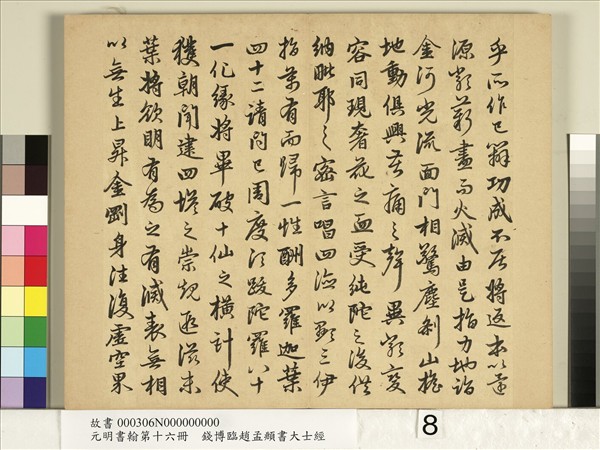 乎所作已辦功成不居將返本以還
源類薪盡而火滅由是指力地詣
金河光流面門相驚塵刹山搖
地動俱興苦痛之聲異類變
容同現奢花之血受純陀之後供
納毗耶之密言唱四德以顯三伊
指萬有而歸一性酬多羅迦葉
四十二請問已周度須跋陀羅八十
一化緣將畢破十仙之橫計使
獲朝聞建四塔之崇規遐滋末
葉將欲明有為之有滅表無相
以無生上昇金剛身往復虛空界
故書 000306N000000000
元明書翰第十六冊　錢博臨趙孟頫書大士經
8